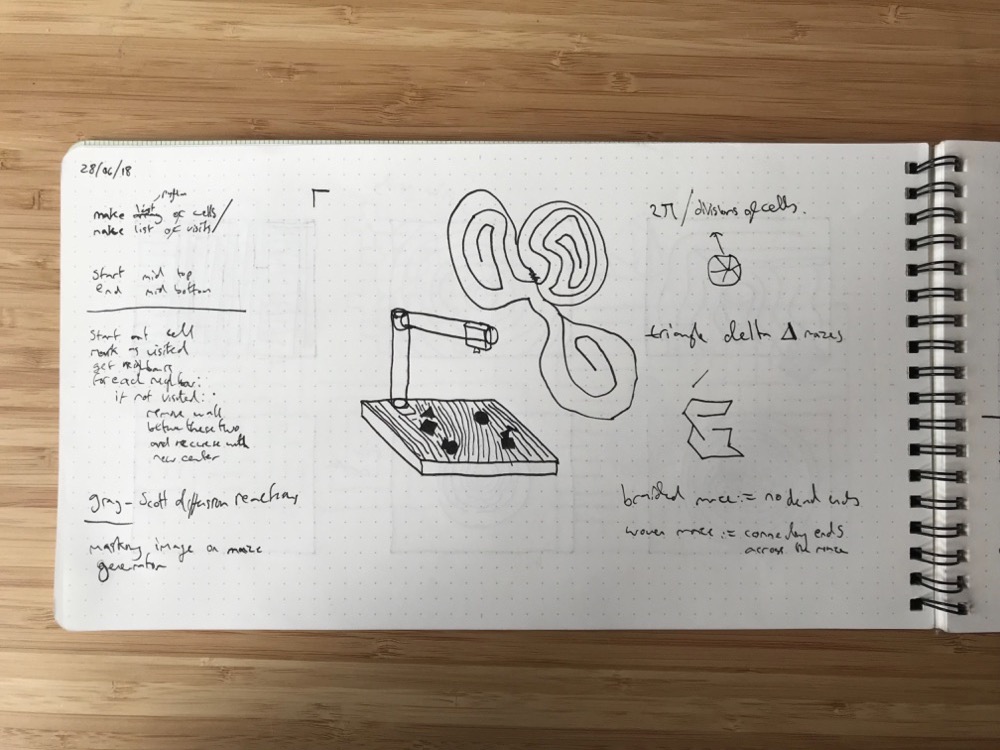 28/06/18
make list of cells/
make list of visits
start mid top
end mid bottom
start at cell
mark as visited
get neighbours
for each neighbour:
if not visited:
remove wall
between these two
and recurse with
new center
gray-Scott diffusion reactions
masking image on maze
generator
2π/divisions of cells.
triangle delta Δ mazes
braided maze := no dead ends
woven maze := connecting ends
across the maze